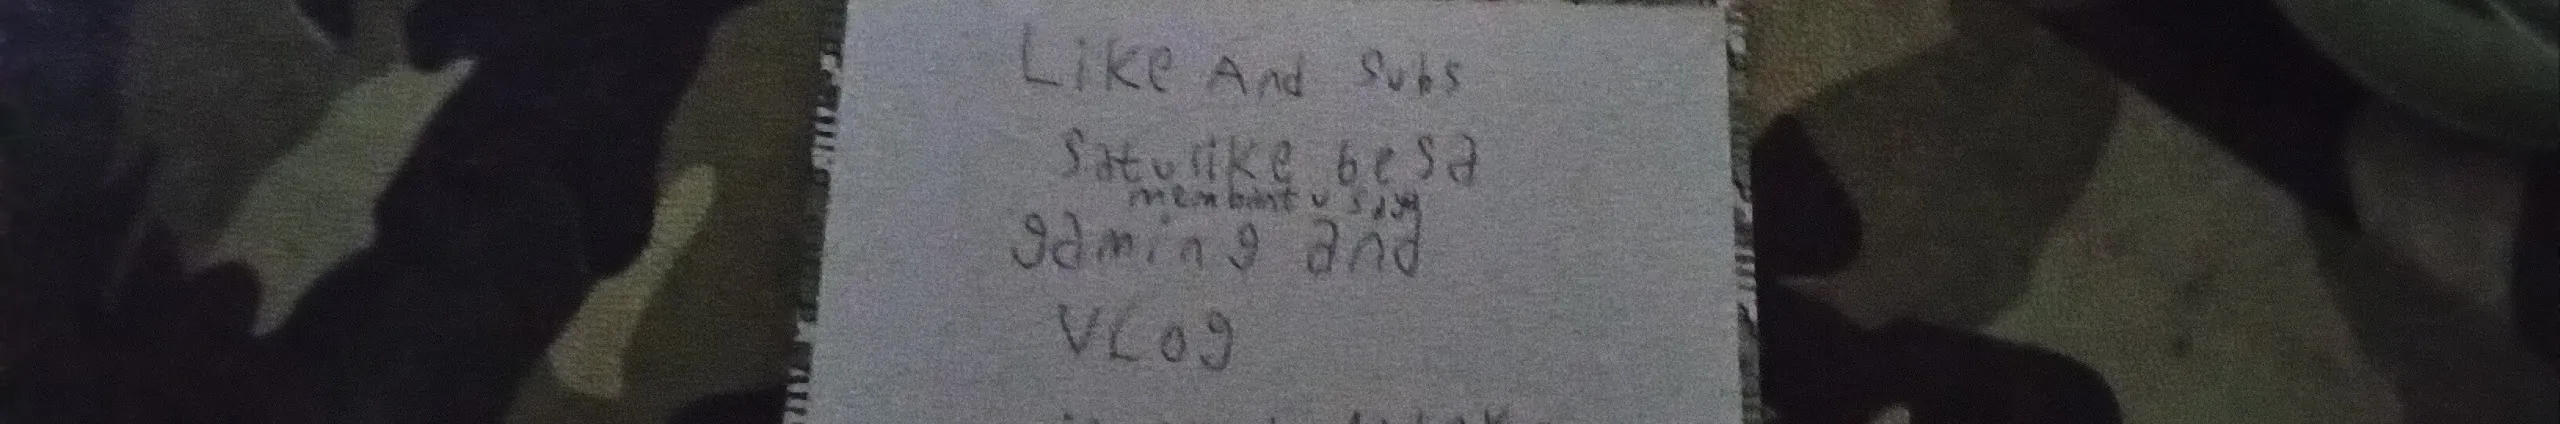 Like And Subs
satu like besa
membantu saya
gaming and
VLog